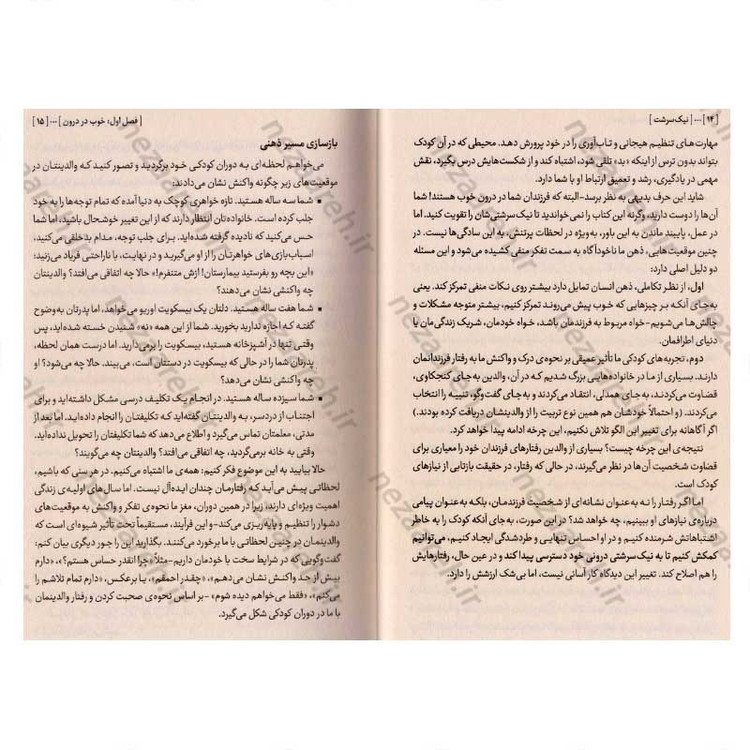 [ ۱۴ ] ... [ نیک‌سرشت ]
مهارت‌های تنظیم هیجانی و تاب‌آوری را در خود پرورش دهد. محیطی که در آن کودک
بتواند بدون ترس از اینکه «بد» تلقی شود، اشتباه کند و از شکست‌هایش درس بگیرد، نقش
مهمی در یادگیری، رشد و تعمیق ارتباط او با شما دارد.
شاید این حرف بدیهی به نظر برسد-البته که فرزندان شما در درون خوب هستند! شما
آن‌ها را دوست دارید، وگرنه این کتاب را نمی‌خواندید تا نیک‌سرشتی‌شان را تقویت کنید. اما
در عمل، پایبند ماندن به این باور، به‌ویژه در لحظات پرتنش، به این سادگی‌ها نیست. در
چنین موقعیت‌هایی، ذهن ما ناخودآگاه به سمت تفکر منفی کشیده می‌شود و این مسئله
دو دلیل اصلی دارد:
اول، از نظر تکاملی، ذهن انسان تمایل دارد بیشتر روی نکات منفی تمرکز کند. یعنی
به‌جای آنکه بر چیزهایی که خوب پیش می‌روند تمرکز کنیم، بیشتر متوجه مشکلات و
چالش‌ها می‌شویم-خواه مربوط به فرزندمان باشد، خواه خودمان، شریک زندگی‌مان یا
دنیای اطرافمان.
دوم، تجربه‌های کودکی ما تأثیر عمیقی بر نحوه‌ی درک و واکنش ما به رفتار فرزندانمان
دارند. بسیاری از ما در خانواده‌هایی بزرگ شدیم که در آن، والدین به‌جای کنجکاوی،
قضاوت می‌کردند، به‌جای همدلی، انتقاد می‌کردند و به‌جای گفت‌وگو، تنبیه را انتخاب
می‌کردند. (و احتمالاً خودشان هم همین نوع تربیت را از والدینشان دریافت کرده بودند.)
اگر آگاهانه برای تغییر این الگو تلاش نکنیم، این چرخه ادامه پیدا خواهد کرد.
نتیجه‌ی این چرخه چیست؟ بسیاری از والدین رفتارهای فرزندان خود را معیاری برای
قضاوت شخصیت آن‌ها در نظر می‌گیرند، در حالی که رفتار، در حقیقت بازتابی از نیازهای
کودک است.
اما اگر رفتار را نه به‌عنوان نشانه‌ای از شخصیت فرزندمان، بلکه به‌عنوان پیامی
درباره‌ی نیازهای او ببینیم، چه خواهد شد؟ در این صورت، به‌جای آنکه کودک را به خاطر
اشتباهاتش شرمنده کنیم و در او احساس تنهایی و طردشدگی ایجاد کنیم، می‌توانیم
کمکش کنیم تا به نیک‌سرشتی درونی خود دسترسی پیدا کند و در عین حال، رفتارهایش
را هم اصلاح کند. تغییر این دیدگاه کار آسانی نیست، اما بی‌شک ارزشش را دارد.
[ فصل اول: خوب در درون ] ... [ ۱۵ ]
بازسازی مسیر ذهنی
می‌خواهم لحظه‌ای به دوران کودکی خود برگردید و تصور کنید که والدینتان در
موقعیت‌های زیر چگونه واکنش نشان می‌دادند:
▪ شما سه ساله هستید. تازه خواهری کوچک به دنیا آمده که تمام توجه‌ها را به خود
جلب کرده است. خانواده‌تان انتظار دارند که از این تغییر خوشحال باشید، اما شما
حس می‌کنید که نادیده گرفته شده‌اید. برای جلب توجه، مدام بدخلقی می‌کنید،
اسباب‌بازی‌های خواهرتان را از او می‌گیرید و در نهایت، با ناراحتی فریاد می‌زنید؛
«این بچه رو بفرستید بیمارستان! ازش متنفرم!» حالا چه اتفاقی می‌افتد؟ والدینتان
چه واکنشی نشان می‌دهند؟
▪ شما هفت ساله هستید. دلتان یک بیسکویت اوریو می‌خواهد، اما پدرتان به‌وضوح
گفته که اجازه ندارید بخورید. شما از این همه «نه» شنیدن خسته شده‌اید، پس
وقتی تنها در آشپزخانه هستید، بیسکویت را برمی‌دارید. اما درست همان لحظه،
پدرتان شما را در حالی که بیسکویت در دستتان است، می‌بیند. حالا چه می‌شود؟ او
چه واکنشی نشان می‌دهد؟
▪ شما سیزده ساله هستید. در انجام یک تکلیف درسی مشکل داشته‌اید و برای
اجتناب از دردسر، به والدینتان گفته‌اید که تکلیفتان را انجام داده‌اید. اما بعد از
مدتی، معلمتان تماس می‌گیرد و اطلاع می‌دهد که شما تکلیفتان را تحویل نداده‌اید.
وقتی به خانه برمی‌گردید، چه اتفاقی می‌افتد؟ والدینتان چه می‌گویند؟
حالا بیایید به این موضوع فکر کنیم: همه‌ی ما اشتباه می‌کنیم. در هر سنی که باشیم،
لحظاتی پیش می‌آید که رفتارمان چندان ایده‌آل نیست. اما سال‌های اولیه‌ی زندگی
اهمیت ویژه‌ای دارند، زیرا در همین دوران، مغز ما نحوه‌ی تفکر و واکنش به موقعیت‌های
دشوار را تنظیم و پایه‌ریزی می‌کند-و این فرآیند، مستقیماً تحت تأثیر شیوه‌ای است که
والدینمان در چنین لحظاتی با ما برخورد می‌کنند. بگذارید این را جور دیگری بیان کنم:
گفت‌وگویی که در شرایط سخت با خودمان داریم-مثلاً «چرا انقدر حساس هستم؟»، «دارم
بیش از حد واکنش نشان می‌دهم»، «چقدر احمقم»، یا برعکس، «دارم تمام تلاشم را
می‌کنم»، «فقط می‌خواهم دیده شوم»-بر اساس نحوه‌ی صحبت کردن و رفتار والدینمان
با ما در دوران کودکی شکل می‌گیرد.
nezamreh.ir